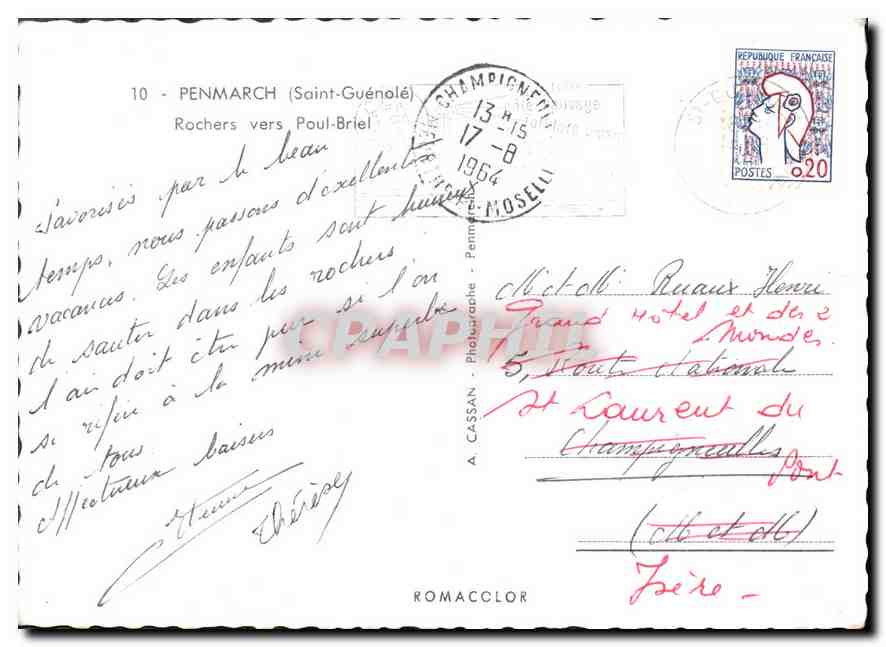 10 - PENMARCH (Saint-Guénolé)
Rochers vers Poul-Briel
Favorisés par le beau
temps, nous passons d'excellentes
vacances. Les enfants sont heureux
de sauter dans les rochers
l'air doit être pur si l'on
se réfère à la mine superbe
de tous
Affectueux baisers
Etienne
Thérèse
A. CASSAN - Photographe - Penmarch
CHAMPIGNEULLES
13 H -15
17 -8
1964
MEURTHE-&-MOSELLE
REPUBLIQUE FRANÇAISE
POSTES 0,20
Mr et Mme Ruaux Henri
Grand Hôtel et des 2
Mondes
5, Route Nationale
St Laurent du
Champigneulles
Pont
(M et M)
Isère -
ROMACOLOR
CPAPHIL